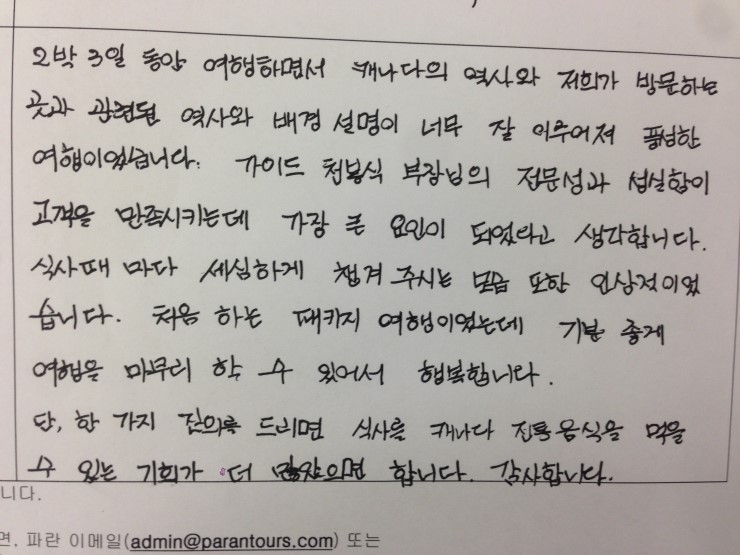 2박 3일 동안 여행하면서 캐나다의 역사와 저희가 방문하는
곳과 관련된 역사와 배경 설명이 너무 잘 이루어져 풍성한
여행이었습니다. 가이드 천봉식 부장님의 전문성과 성실함이
고객을 만족시키는데 가장 큰 요인이 되었다고 생각합니다.
식사때 마다 세심하게 챙겨 주시는 모습 또한 인상적이었
습니다. 처음 하는 패키지 여행이었는데 기분 좋게
여행을 마무리 할 수 있어서 행복합니다.
단, 한 가지 건의를 드리면 식사를 캐나다 전통음식을 먹을
수 있는 기회가 더 많았으면 합니다. 감사합니다.
니다.
면, 파란 이메일(admin@parantours.com) 또는